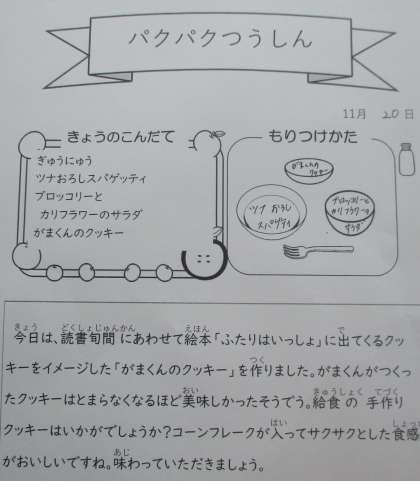 パクパクつうしん
11月 20日
きょうのこんだて
ぎゅうにゅう
ツナおろしスパゲッティ
ブロッコリーと
カリフラワーのサラダ
がまくんのクッキー
もりつけかた
がまくんの
クッキー
ツナおろし
スパゲティ
ブロッコリーと
カリフラワーの
サラダ
きょう どくしょじゅんかん えほん で
今日は、読書旬間にあわせて絵本「ふたりはいっしょ」に出てくるクッ
つく
キーをイメージした「がまくんのクッキー」を作りました。がまくんがつくっ
おい きゅうしょく てづく
たクッキーはとまらなくなるほど美味しかったそうでう。給食の 手作り
はい しょっ
クッキーはいかがでしょうか？コーンフレークが入ってサクサクとした食感
あじ
がおいしいですね。味わっていただきましょう。